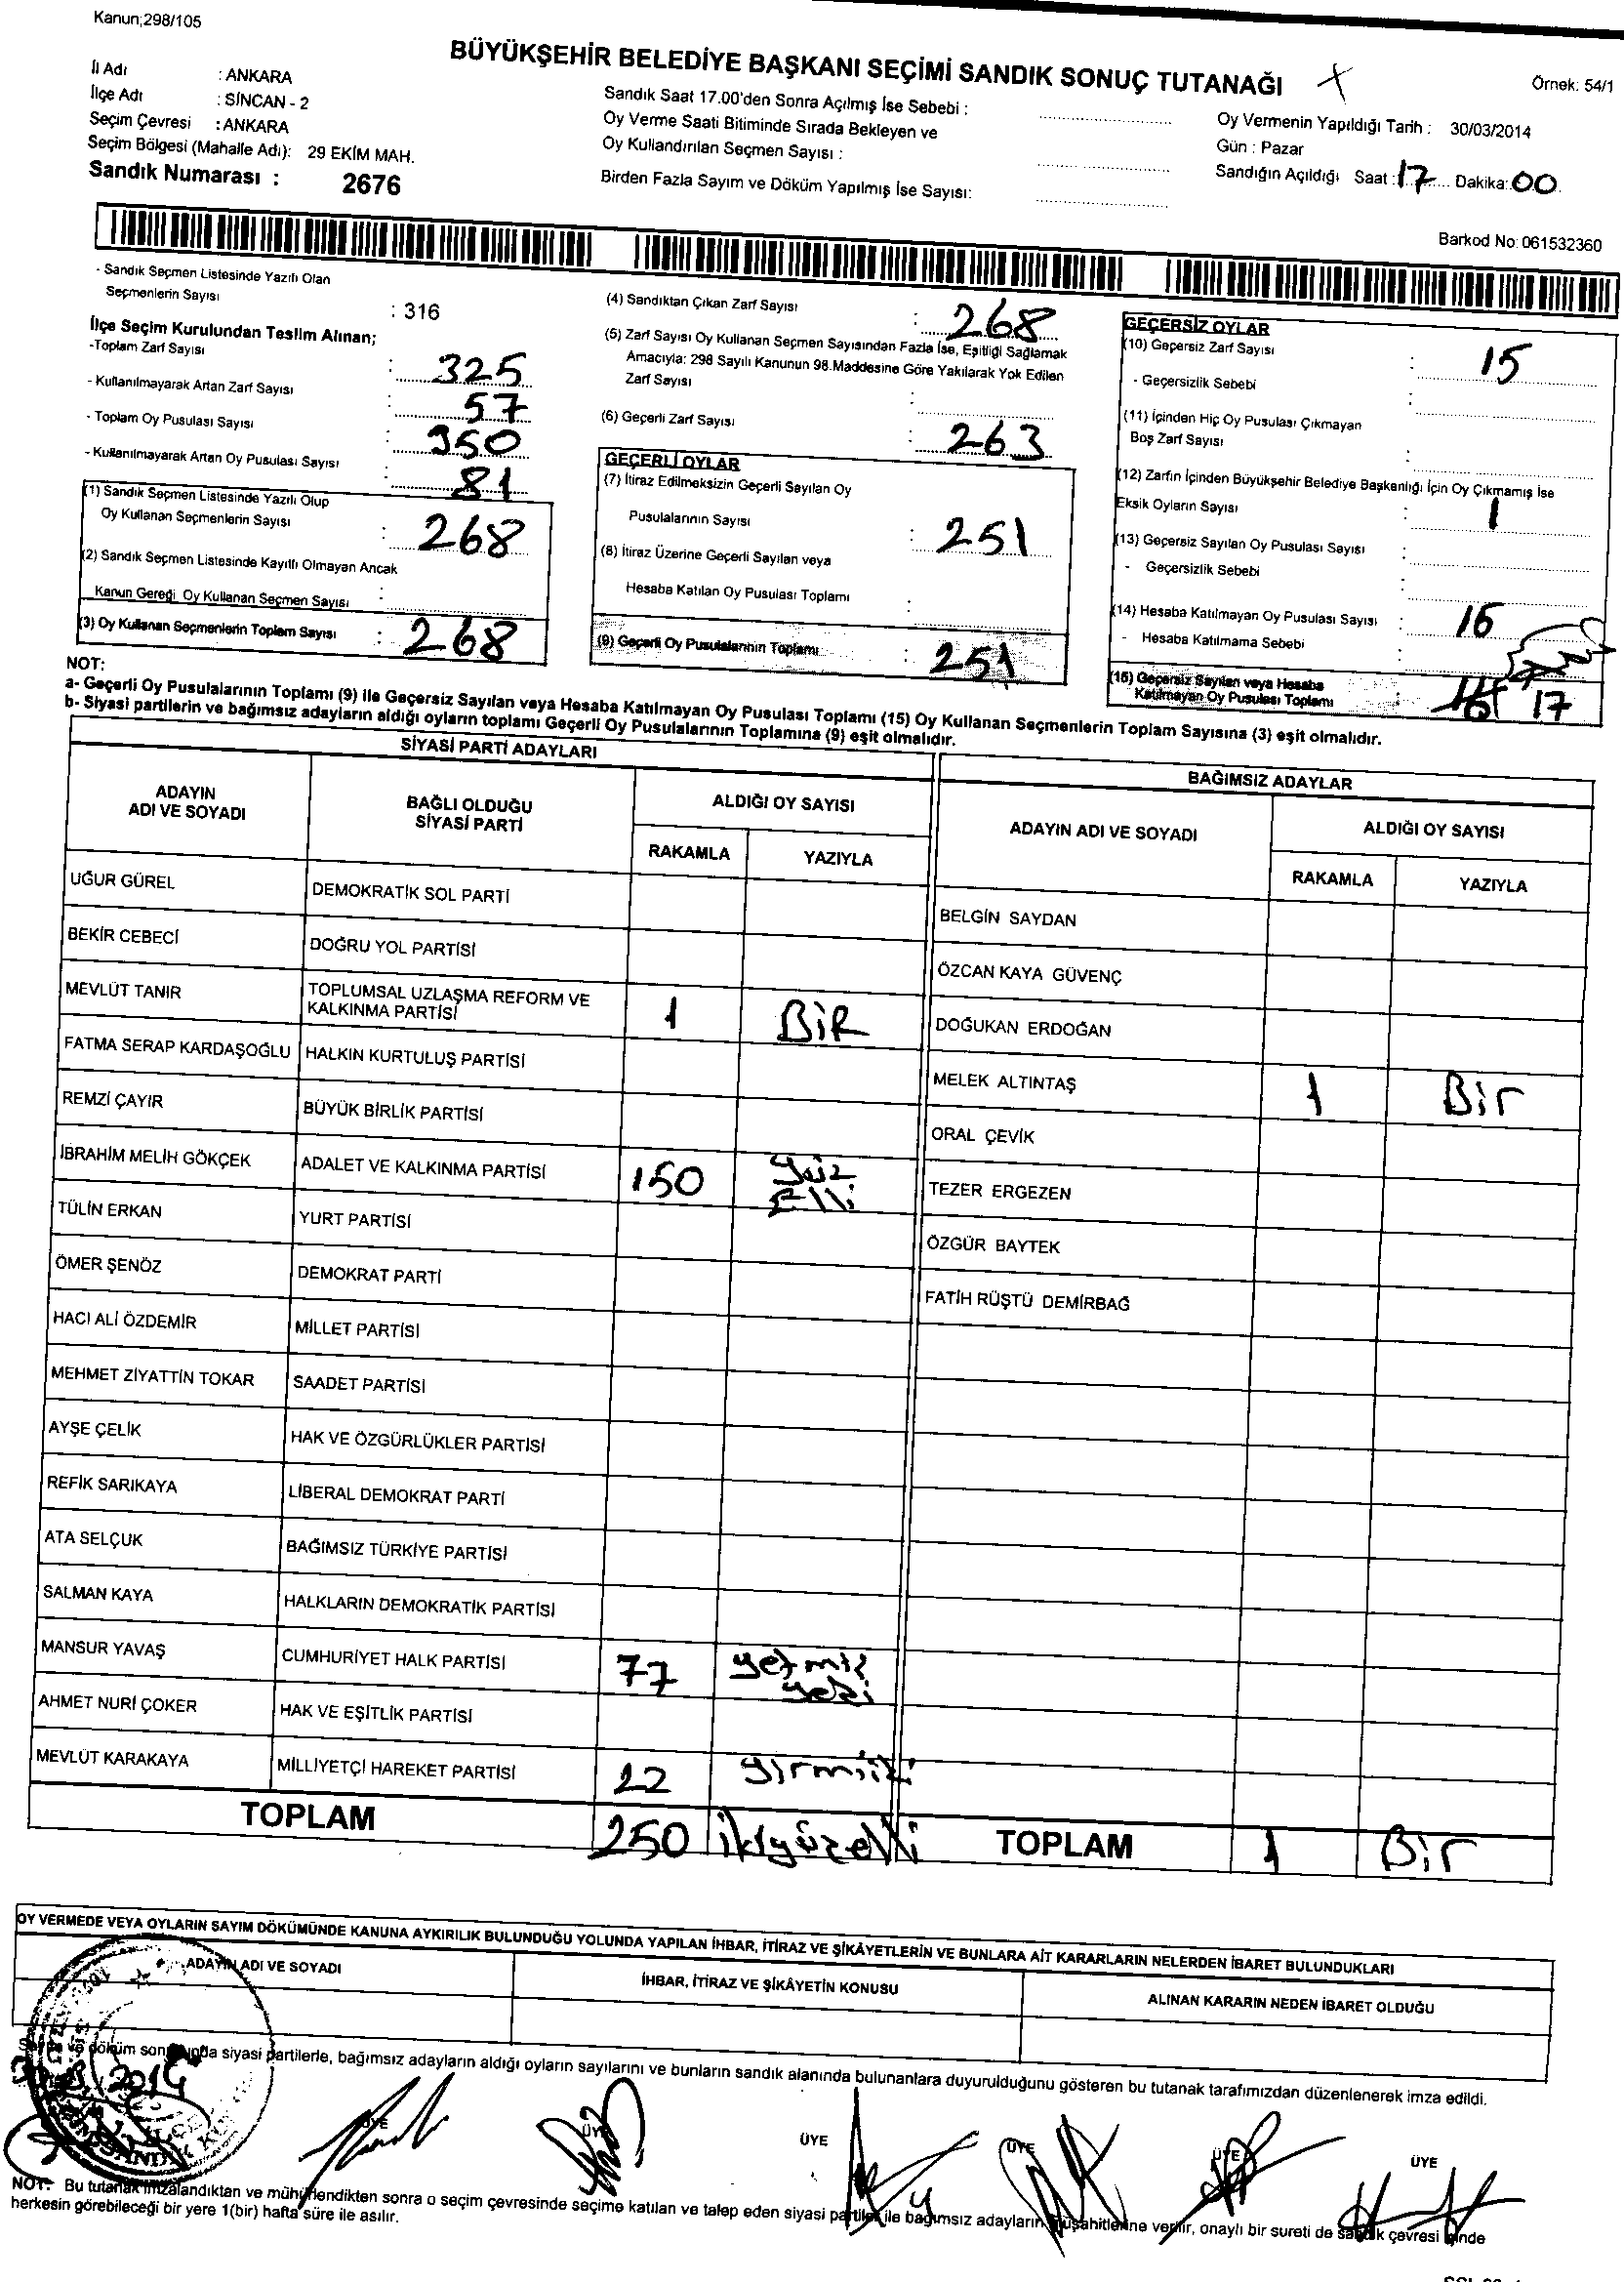 Kanun;298/105
BÜYÜKŞEHİR BELEDİYE BAŞKANI SEÇİMİ SANDIK SONUÇ TUTANAĞI
Örnek: 54/1
İl Adı : ANKARA
İlçe Adı : SİNCAN - 2
Seçim Çevresi : ANKARA
Seçim Bölgesi (Mahalle Adı): 29 EKİM MAH.
Sandık Numarası : 2676
Sandık Saat 17.00'den Sonra Açılmış İse Sebebi :
Oy Verme Saati Bitiminde Sırada Bekleyen ve
Oy Kullandırılan Seçmen Sayısı :
Birden Fazla Sayım ve Döküm Yapılmış İse Sayısı:
Oy Vermenin Yapıldığı Tarih : 30/03/2014
Gün : Pazar
Sandığın Açıldığı Saat : 17 Dakika: 00
Barkod No: 061532360
- Sandık Seçmen Listesinde Yazılı Olan
Seçmenlerin Sayısı : 316
İlçe Seçim Kurulundan Teslim Alınan;
-Toplam Zarf Sayısı : 325
- Kullanılmayarak Artan Zarf Sayısı : 57
- Toplam Oy Pusulası Sayısı : 350
- Kullanılmayarak Artan Oy Pusulası Sayısı : 81
(1) Sandık Seçmen Listesinde Yazılı Olup
Oy Kullanan Seçmenlerin Sayısı : 268
(2) Sandık Seçmen Listesinde Kayıtlı Olmayan Ancak
Kanun Gereği Oy Kullanan Seçmen Sayısı :
(3) Oy Kullanan Seçmenlerin Toplam Sayısı : 268
(4) Sandıktan Çıkan Zarf Sayısı : 268
(5) Zarf Sayısı Oy Kullanan Seçmen Sayısından Fazla İse, Eşitliği Sağlamak
Amacıyla: 298 Sayılı Kanunun 98.Maddesine Göre Yakılarak Yok Edilen
Zarf Sayısı :
(6) Geçerli Zarf Sayısı : 263
GEÇERLİ OYLAR
(7) İtiraz Edilmeksizin Geçerli Sayılan Oy
Pusulalarının Sayısı : 251
(8) İtiraz Üzerine Geçerli Sayılan veya
Hesaba Katılan Oy Pusulası Toplamı :
(9) Geçerli Oy Pusulalarının Toplamı : 251
GEÇERSİZ OYLAR
(10) Geçersiz Zarf Sayısı : 15
- Geçersizlik Sebebi :
(11) İçinden Hiç Oy Pusulası Çıkmayan
Boş Zarf Sayısı :
(12) Zarfın İçinden Büyükşehir Belediye Başkanlığı İçin Oy Çıkmamış İse
Eksik Oyların Sayısı : 1
(13) Geçersiz Sayılan Oy Pusulası Sayısı :
- Geçersizlik Sebebi :
(14) Hesaba Katılmayan Oy Pusulası Sayısı : 16
- Hesaba Katılmama Sebebi
(15) Geçersiz Sayılan veya Hesaba
Katılmayan Oy Pusulası Toplamı : 17
NOT:
a- Geçerli Oy Pusulalarının Toplamı (9) ile Geçersiz Sayılan veya Hesaba Katılmayan Oy Pusulası Toplamı (15) Oy Kullanan Seçmenlerin Toplam Sayısına (3) eşit olmalıdır.
b- Siyasi partilerin ve bağımsız adayların aldığı oyların toplamı Geçerli Oy Pusulalarının Toplamına (9) eşit olmalıdır.
SİYASİ PARTİ ADAYLARI
ADAYIN ADI VE SOYADI BAĞLI OLDUĞU SİYASİ PARTİ ALDIĞI OY SAYISI
RAKAMLA YAZIYLA
UĞUR GÜREL DEMOKRATİK SOL PARTİ
BEKİR CEBECİ DOĞRU YOL PARTİSİ
MEVLÜT TANIR TOPLUMSAL UZLAŞMA REFORM VE KALKINMA PARTİSİ 1 BİR
FATMA SERAP KARDAŞOĞLU HALKIN KURTULUŞ PARTİSİ
REMZİ ÇAYIR BÜYÜK BİRLİK PARTİSİ
İBRAHİM MELİH GÖKÇEK ADALET VE KALKINMA PARTİSİ 150 yüz Elli
TÜLİN ERKAN YURT PARTİSİ
ÖMER ŞENÖZ DEMOKRAT PARTİ
HACI ALİ ÖZDEMİR MİLLET PARTİSİ
MEHMET ZİYATTİN TOKAR SAADET PARTİSİ
AYŞE ÇELİK HAK VE ÖZGÜRLÜKLER PARTİSİ
REFİK SARIKAYA LİBERAL DEMOKRAT PARTİ
ATA SELÇUK BAĞIMSIZ TÜRKİYE PARTİSİ
SALMAN KAYA HALKLARIN DEMOKRATİK PARTİSİ
MANSUR YAVAŞ CUMHURİYET HALK PARTİSİ 77 yetmiş yedi
AHMET NURİ ÇOKER HAK VE EŞİTLİK PARTİSİ
MEVLÜT KARAKAYA MİLLİYETÇİ HAREKET PARTİSİ 22 yirmiiki
TOPLAM 250 ikiyüzelli
BAĞIMSIZ ADAYLAR
ADAYIN ADI VE SOYADI ALDIĞI OY SAYISI
RAKAMLA YAZIYLA
BELGİN SAYDAN
ÖZCAN KAYA GÜVENÇ
DOĞUKAN ERDOĞAN
MELEK ALTINTAŞ 1 Bir
ORAL ÇEVİK
TEZER ERGEZEN
ÖZGÜR BAYTEK
FATİH RÜŞTÜ DEMİRBAĞ
TOPLAM 1 Bir
OY VERMEDE VEYA OYLARIN SAYIM DÖKÜMÜNDE KANUNA AYKIRILIK BULUNDUĞU YOLUNDA YAPILAN İHBAR, İTİRAZ VE ŞİKÂYETLERİN VE BUNLARA AİT KARARLARIN NELERDEN İBARET BULUNDUKLARI
ADAYIN ADI VE SOYADI İHBAR, İTİRAZ VE ŞİKÂYETİN KONUSU ALINAN KARARIN NEDEN İBARET OLDUĞU
döküm sonunda siyasi partilerle, bağımsız adayların aldığı oyların sayılarını ve bunların sandık alanında bulunanlara duyurulduğunu gösteren bu tutanak tarafımızdan düzenlenerek imza edildi.
2014
ÜYE ÜYE ÜYE ÜYE ÜYE ÜYE
NOT: Bu tutanak imzalandıktan ve mühürlendikten sonra o seçim çevresinde seçime katılan ve talep eden siyasi partiler ile bağımsız adayların müşahitlerine verilir, onaylı bir sureti de sandık çevresi içinde
herkesin görebileceği bir yere 1(bir) hafta süre ile asılır.